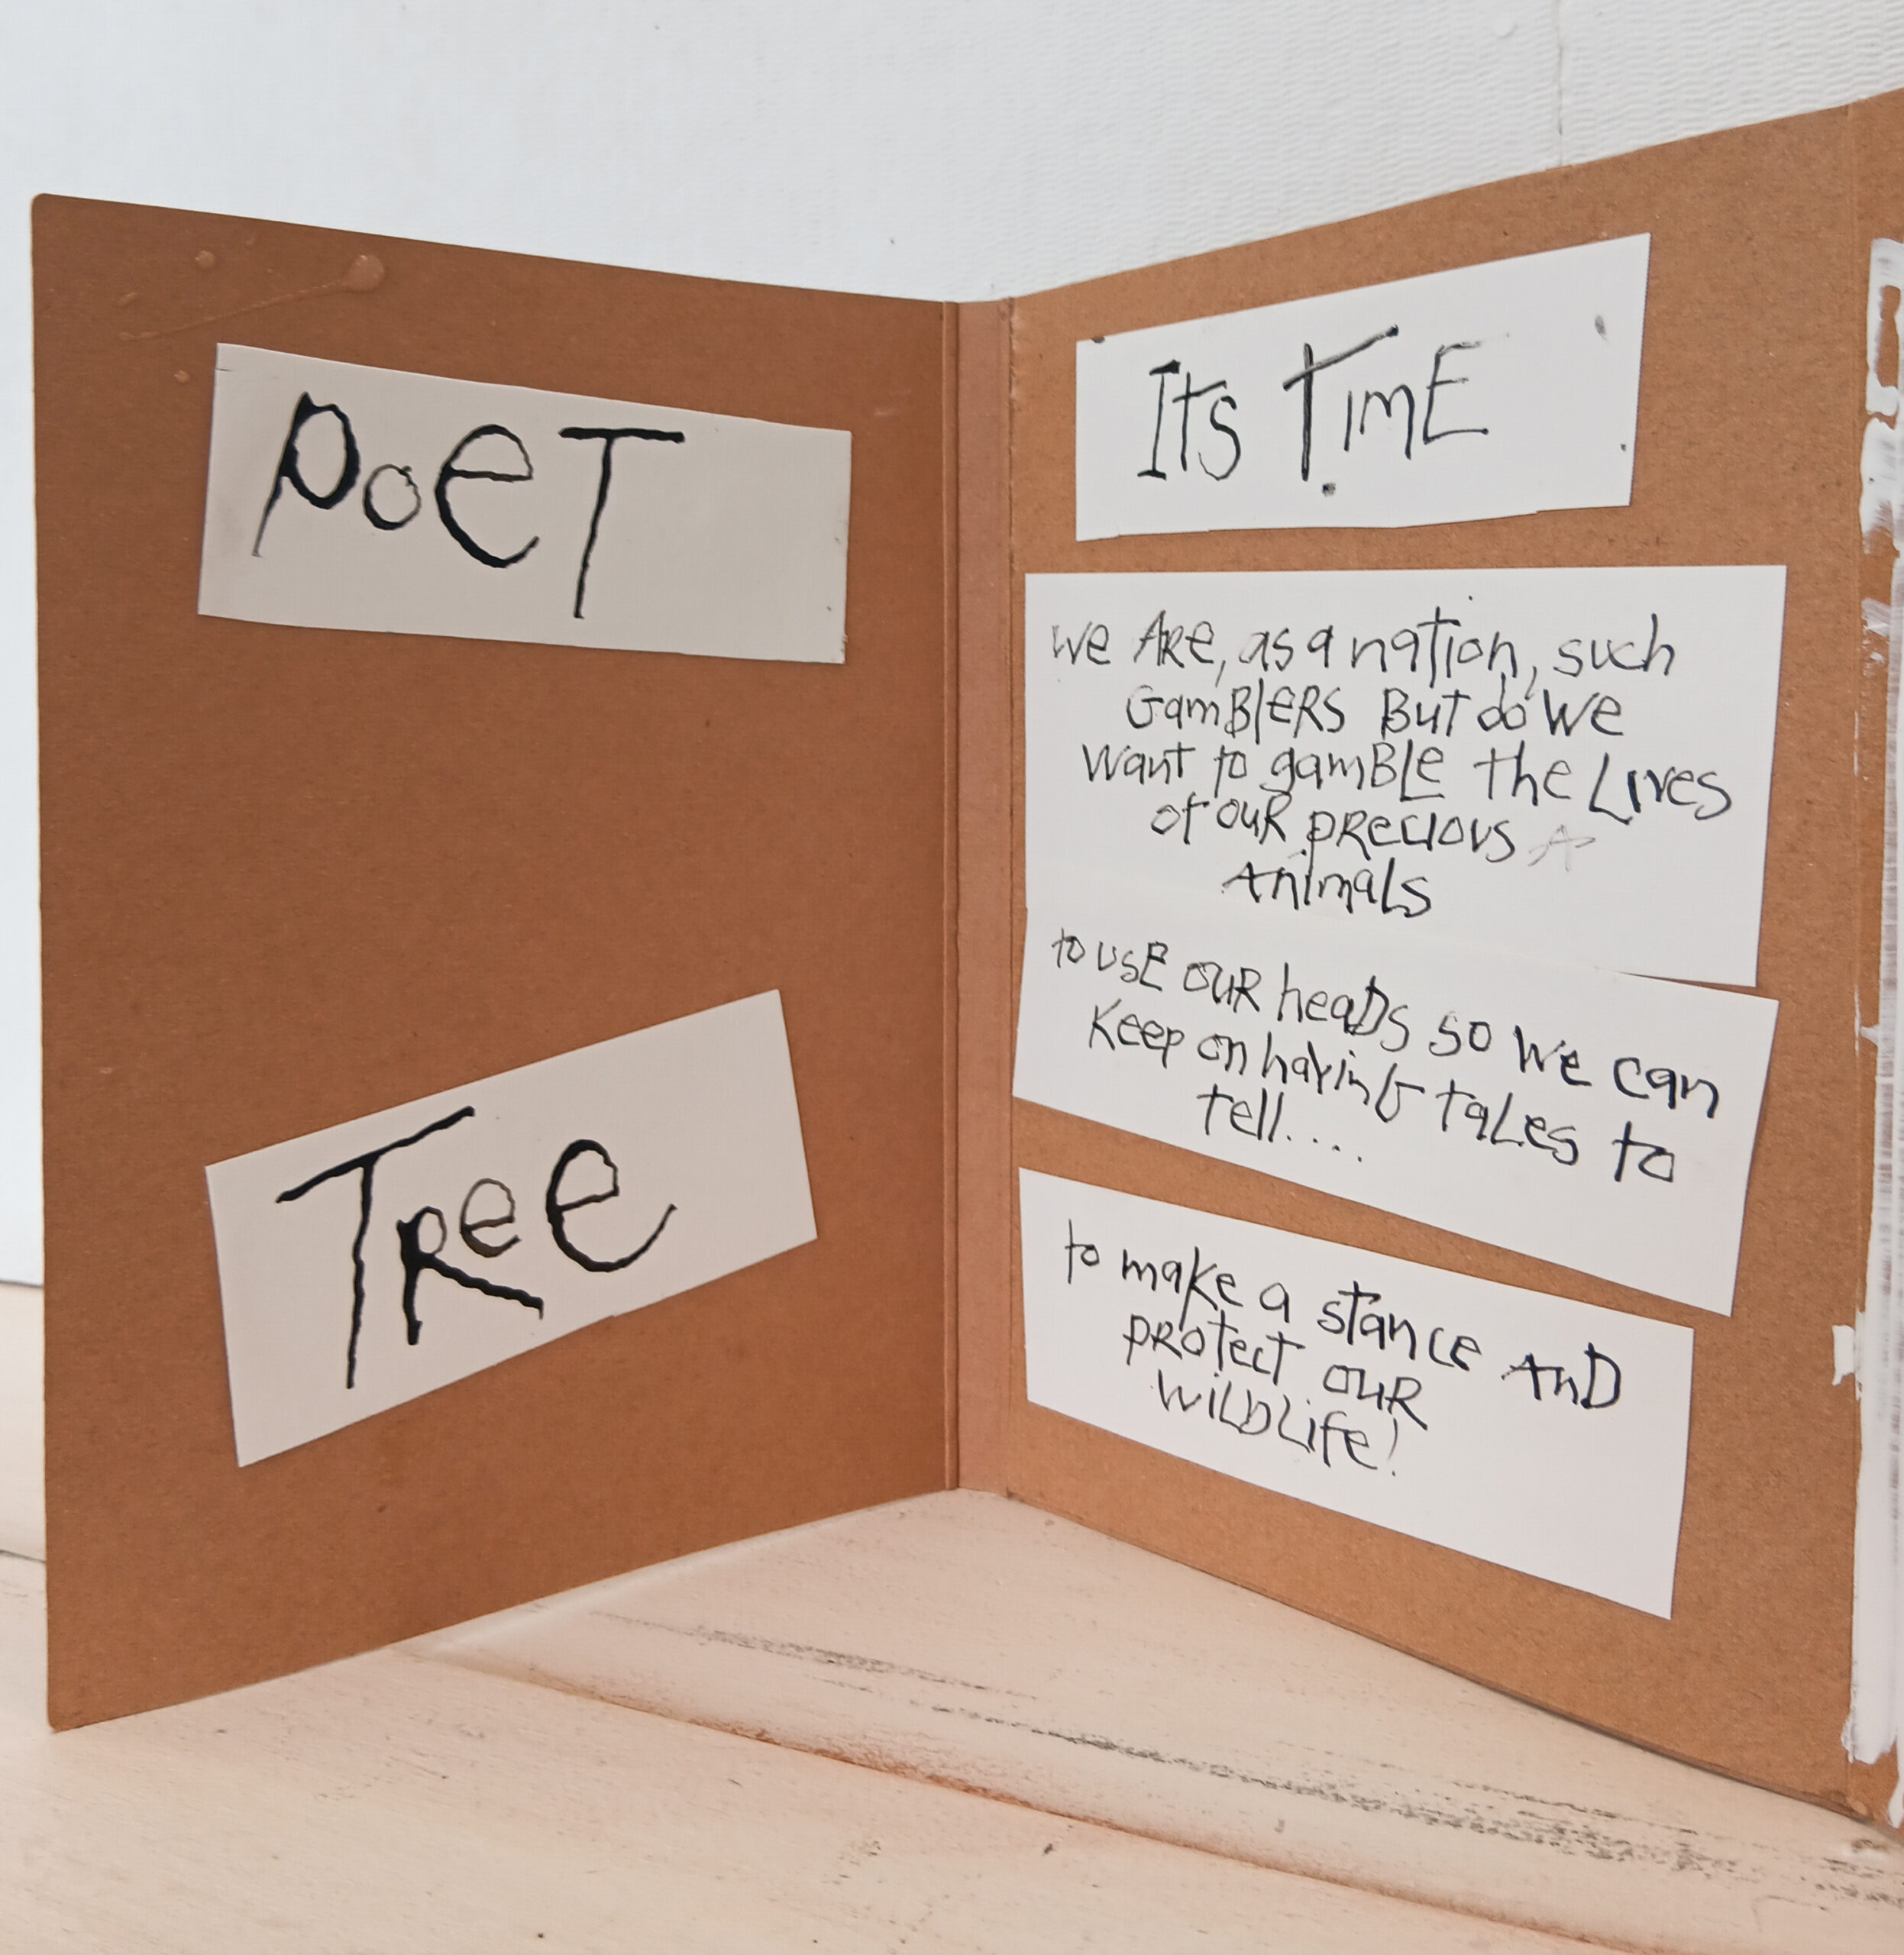 PoeT
TRee
Its TimE
we ARe, as a nation, such
GamBlERS But do we
want to gamBLe the Lives
of ouR pRecious A
Animals
to usE ouR heaDs so we can
Keep on havinG taLes to
tell....
to make a stance AnD
pRotect ouR
wiLDLife!